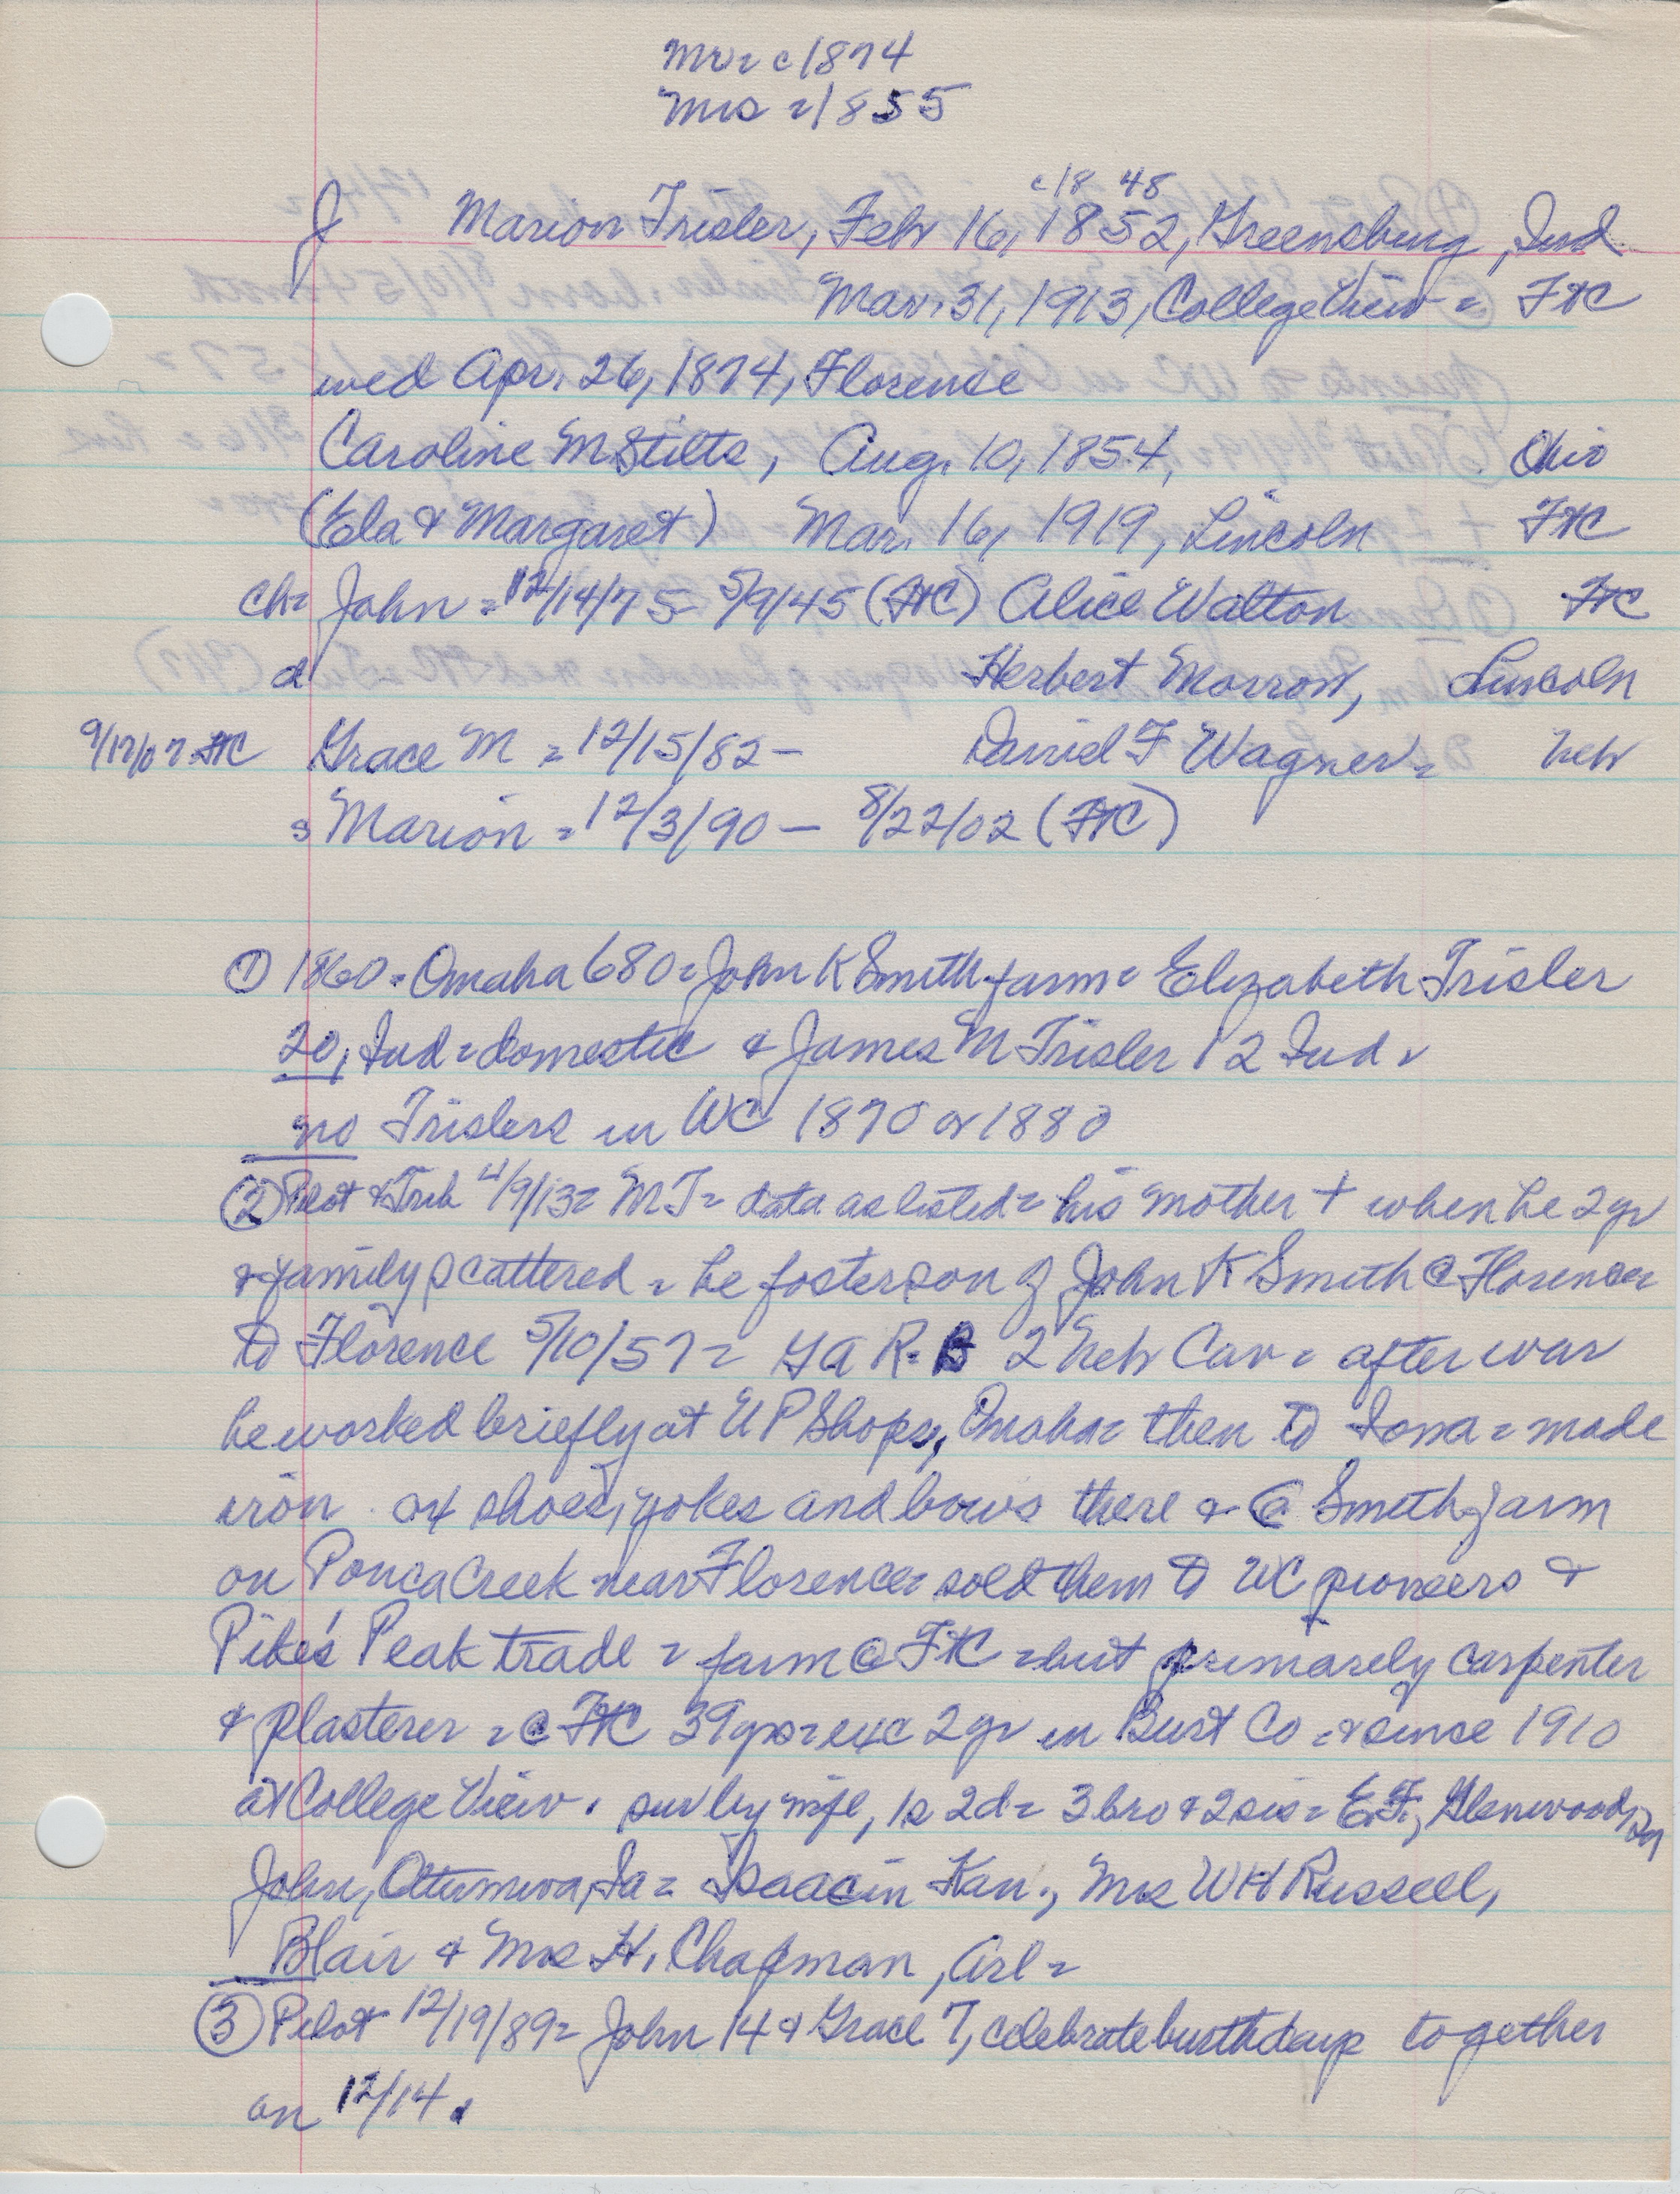 Mr = c1874
Mrs = 1855
c/8 48
J Marion Trisler, Feb 16, 1852, Greensburg, Ind
Mar. 31, 1913, College View = FtC
wed Apr. 26, 1874, Florence
Caroline M Stilts, Aug. 10, 1854, Ohio
(Ela & Margaret) Mar. 16, 1919, Lincoln FtC
ch = John = 12/14/75 - 5/9/45 (FtC) Alice Walton FtC
d Herbert Morrow, Lincoln
9/17/07 FtC Grace M = 12/15/82 - David F Wagner = Neb
s Marion = 12/3/90 - 8/22/02 (FtC)
① 1860 = Omaha 680 = John K Smith farm = Elizabeth Trisler
20, Ind = domestic & James M Trisler 12 Ind.
no Trislers in WC 1870 or 1880
② Pilot & Trib 4/9/13 = MT = data as listed = his mother + when he 2 yr
& family scattered = he fosterson of John K Smith @ Florence =
to Florence 5/10/57 = GAR - B 2 Neb Cav = after war
he worked briefly at UP Shops, Omaha = then to Iowa = made
iron ox shoes, yokes and bows there & @ Smith farm
on Ponca Creek near Florence = sold them to WC pioneers &
Pike's Peak trade = farm @ FtC = but primarely carpenter
& plasterer = @ FtC 39 yrs = exc 2 yr in Burt Co = & since 1910
at College View. sur by wife, 1s 2d = 3 bro & 2 sis = E.F., Glenwood, Ia
John, Ottumwa, Ia = Isaac in Kan., Mrs WH Russell,
Blair & Mrs H. Chapman, Arl =
③ Pilot 12/19/89 = John 14 & Grace 7, celebrate birthdays together
on 12/14.